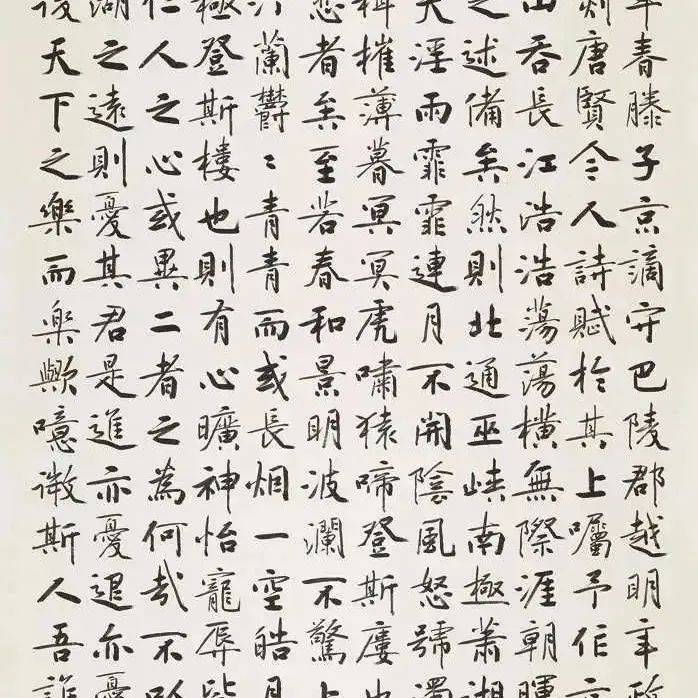 年春滕子京謫守巴陵郡越明年政
刻唐賢今人詩賦於其上囑予作
山吞長江浩浩蕩蕩橫無際涯朝暉
之述備矣然則北通巫峽南極蕭湘
夫淫雨霏霏連月不開陰風怒號濁
楫摧薄暮冥冥虎嘯猿啼登斯樓也
悲者矣至若春和景明波瀾不驚上
汀蘭鬱〻青青而或長烟一空皓月
極登斯樓也則有心曠神怡寵辱皆
仁人之心或異二者之為何哉不以
湖之遠則憂其君是進亦憂退亦憂
後天下之樂而樂歟噫微斯人吾誰